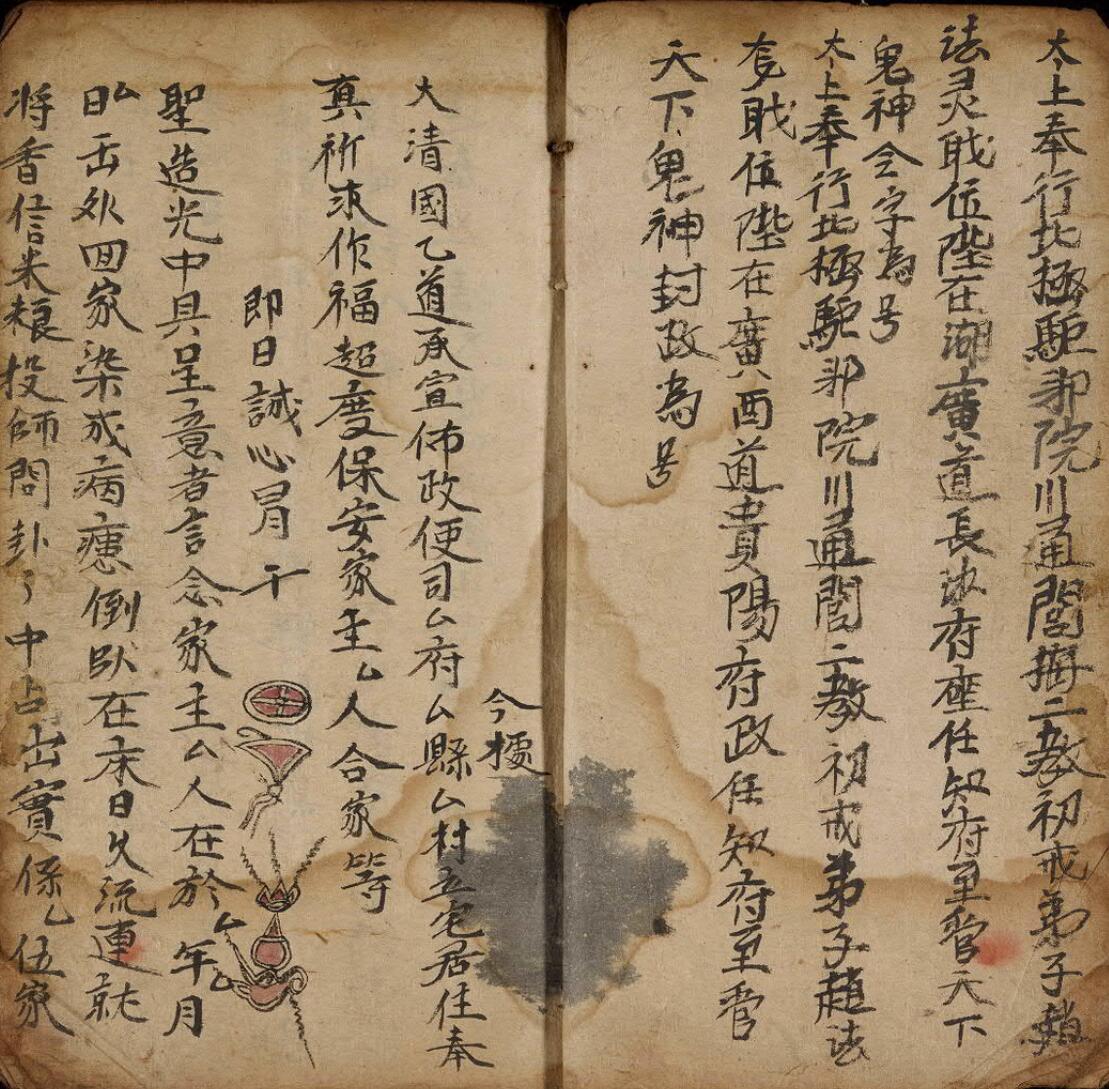 太上奉行北極駈邪院川通閭梅二教初戒弟子趙
法灵職位陞在湖廣道長沙府座任知府至管天下
鬼神仝字為号
太上奉行北極駈邪院川通閭二教初戒弟子趙法
职位陞在廣西道貴陽府政任知府至管
天下鬼神封政為号
今據
大清國乙道承宣佈政使司厶府厶縣厶村立宅居住奉
真祈求作福超度保安家主厶人合家等
即日誠心冒干
聖造光中具呈意者言念家主厶人在於厶年厶月
厶日缶外回家染成病瘜倒卧在床日久流連就
将香信米粮投師問卦了中占出實係厶伍家